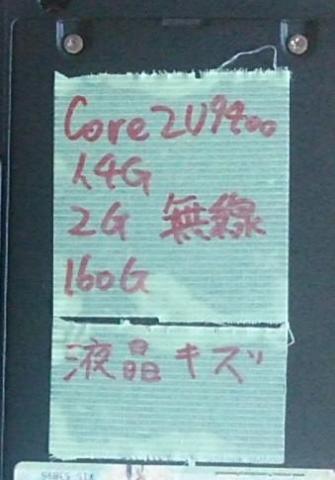 Core2U9400
1.4G
2G 無線
160G
液晶キズ